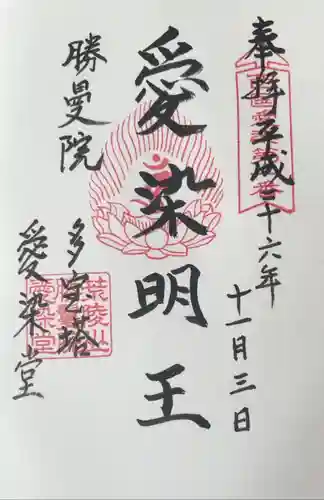 奉拝 平成二十六年
十一月三日
愛染明王
勝曼院
多宝塔
愛染堂
荒陵山
愛染堂